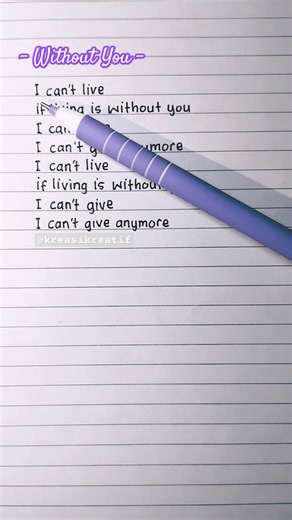 - Without You -
I can't live
if living is without you
I can
I can't anymore
I can't live
if living is without
I can't give
I can't give anymore
@kreasikreatif